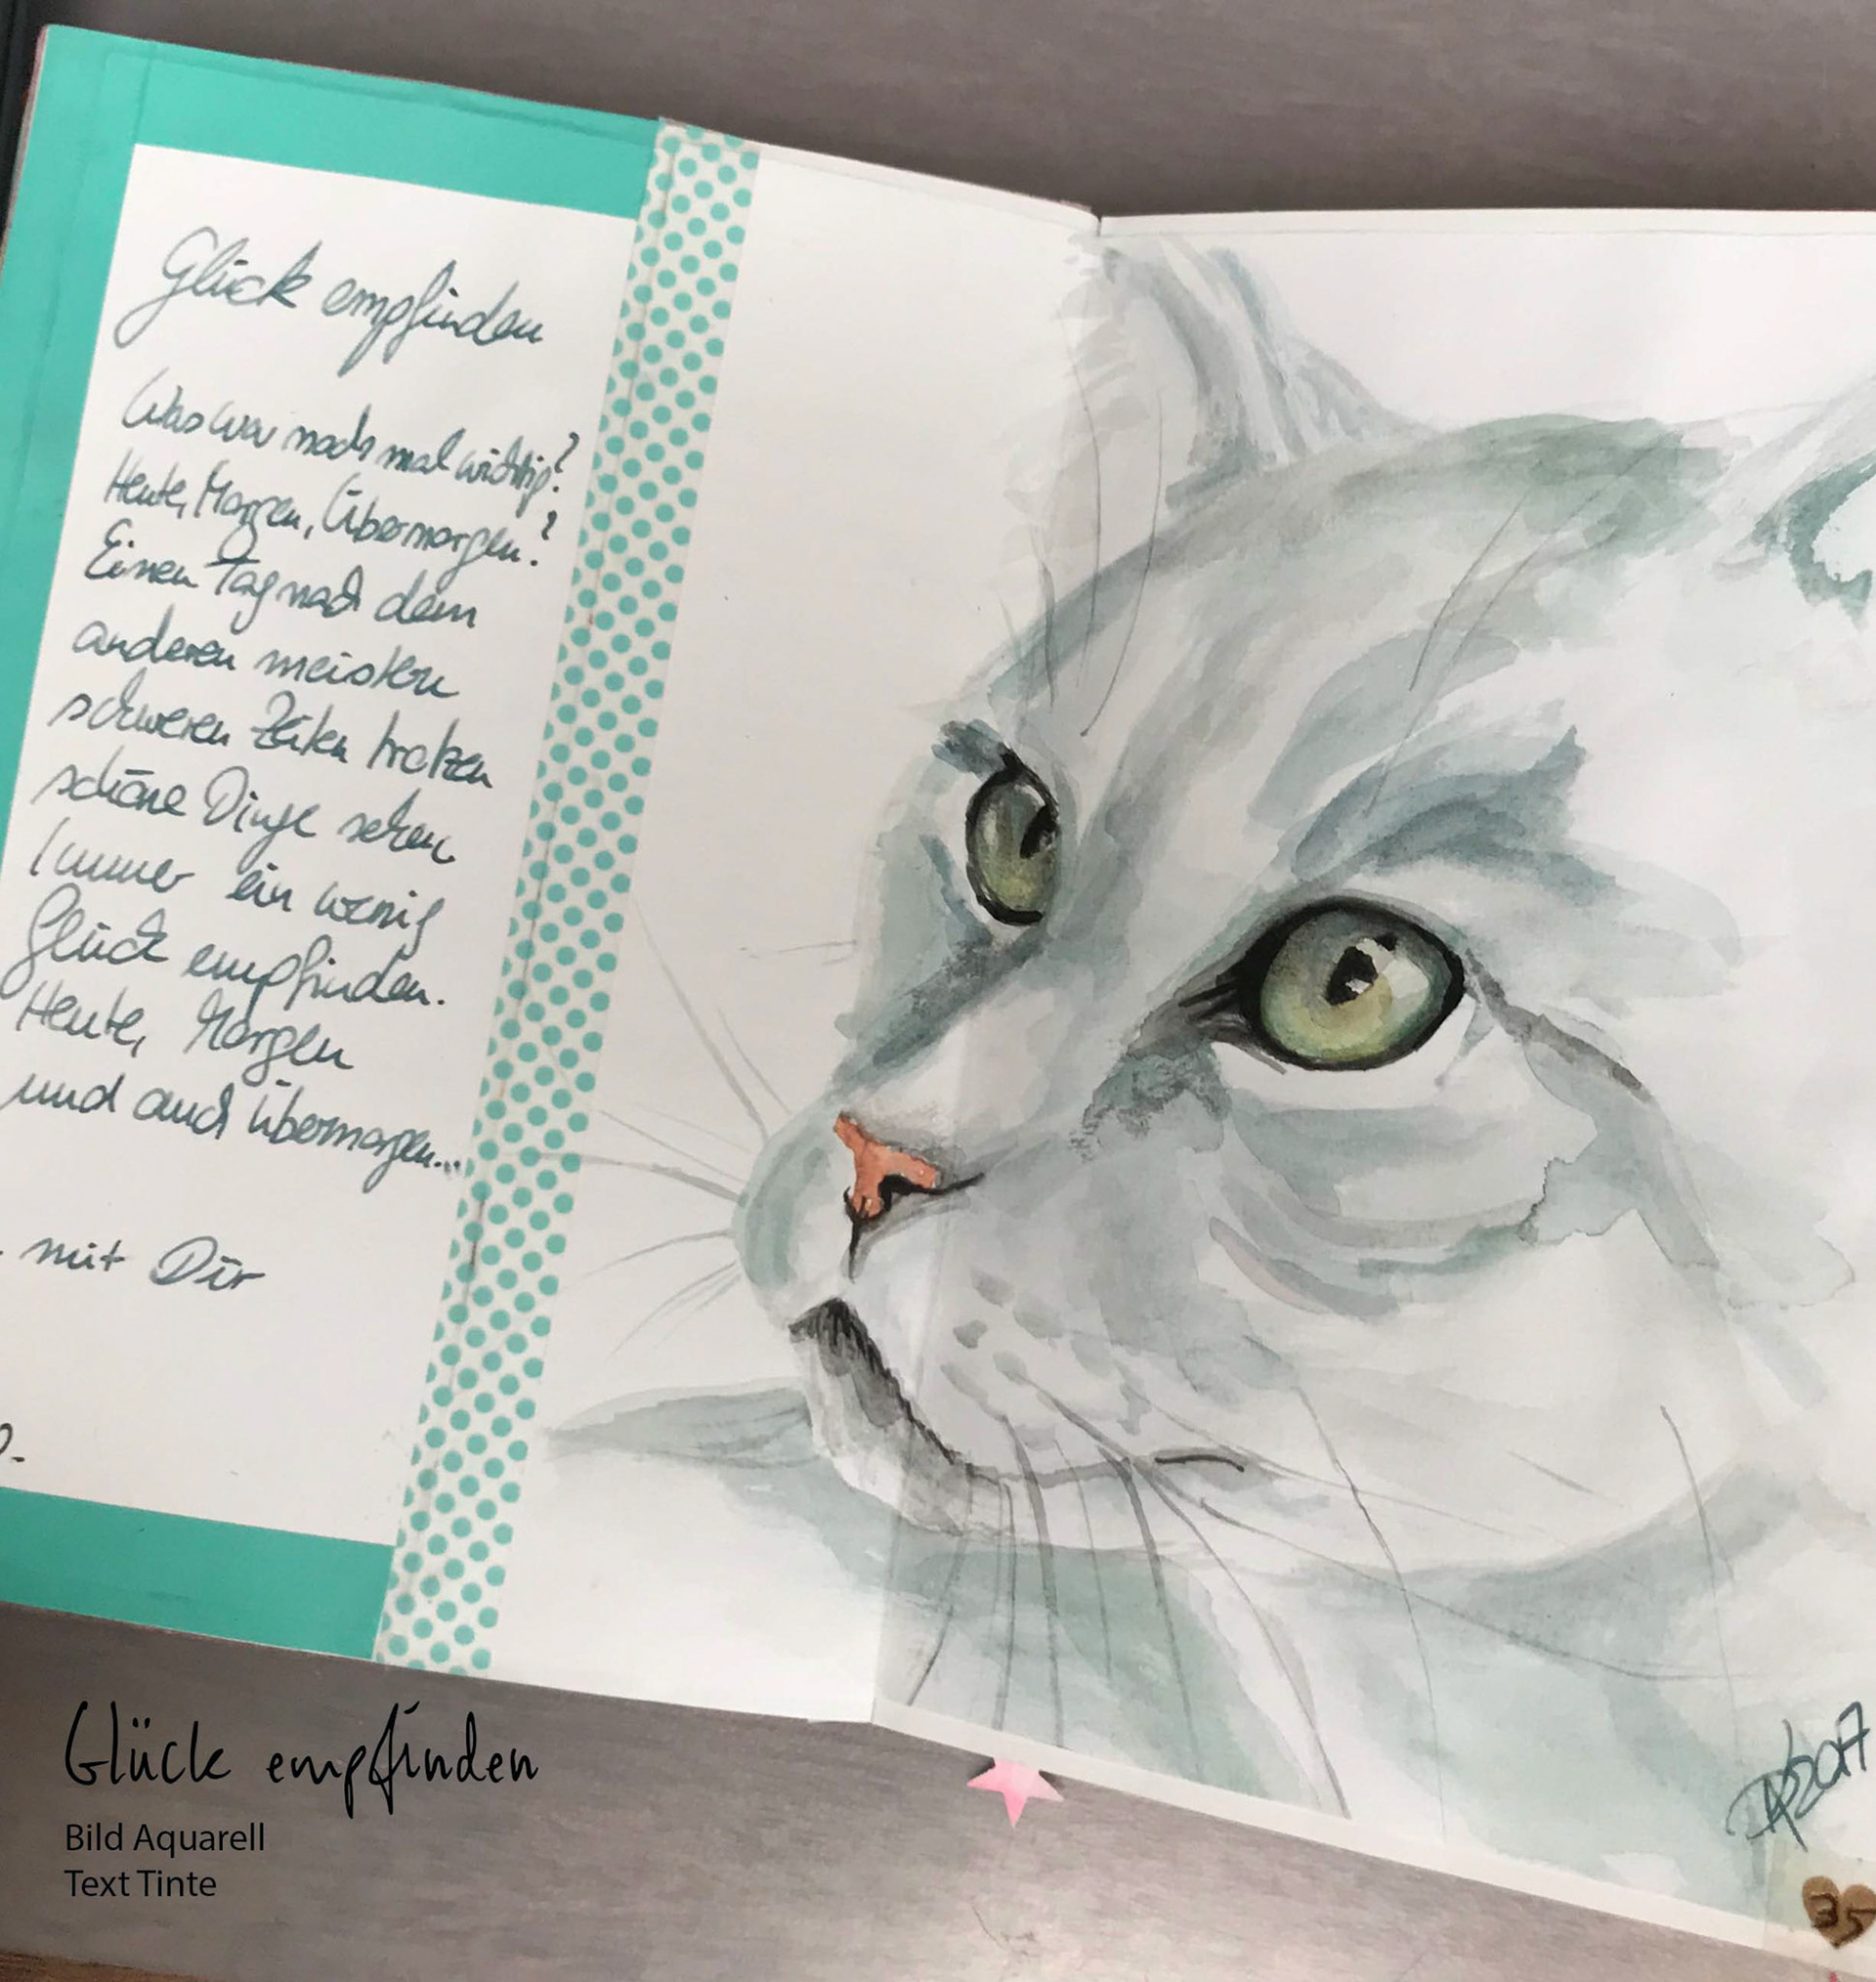 Glück empfinden
Was war noch mal wichtig?
Heute, Morgen, Übermorgen?
Einen Tag nach dem
anderen meistern
schweren Zeiten trotzen
schöne Dinge sehen.
Immer ein wenig
Glück empfinden.
Heute, Morgen
und auch übermorgen...
mit Dir
2017
35
Glück empfinden
Bild Aquarell
Text Tinte